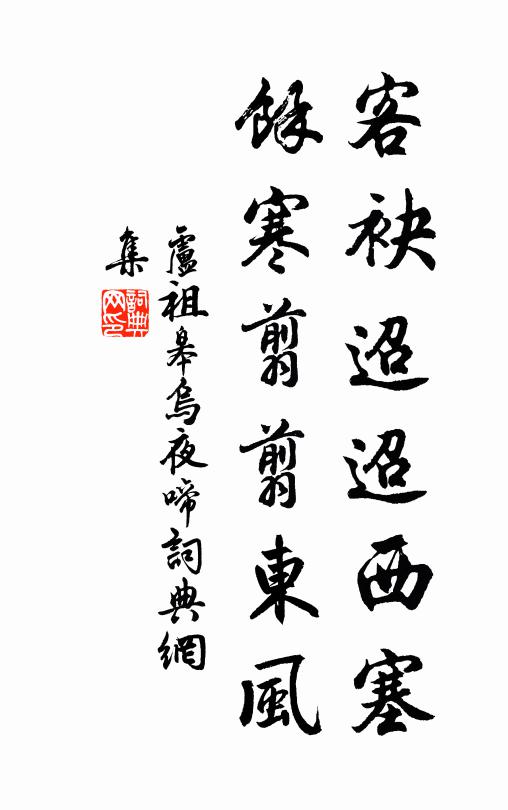 客袂迢迢西塞
餘寒翦翦東風
盧祖皋烏夜啼詞典網
集
詞典網印